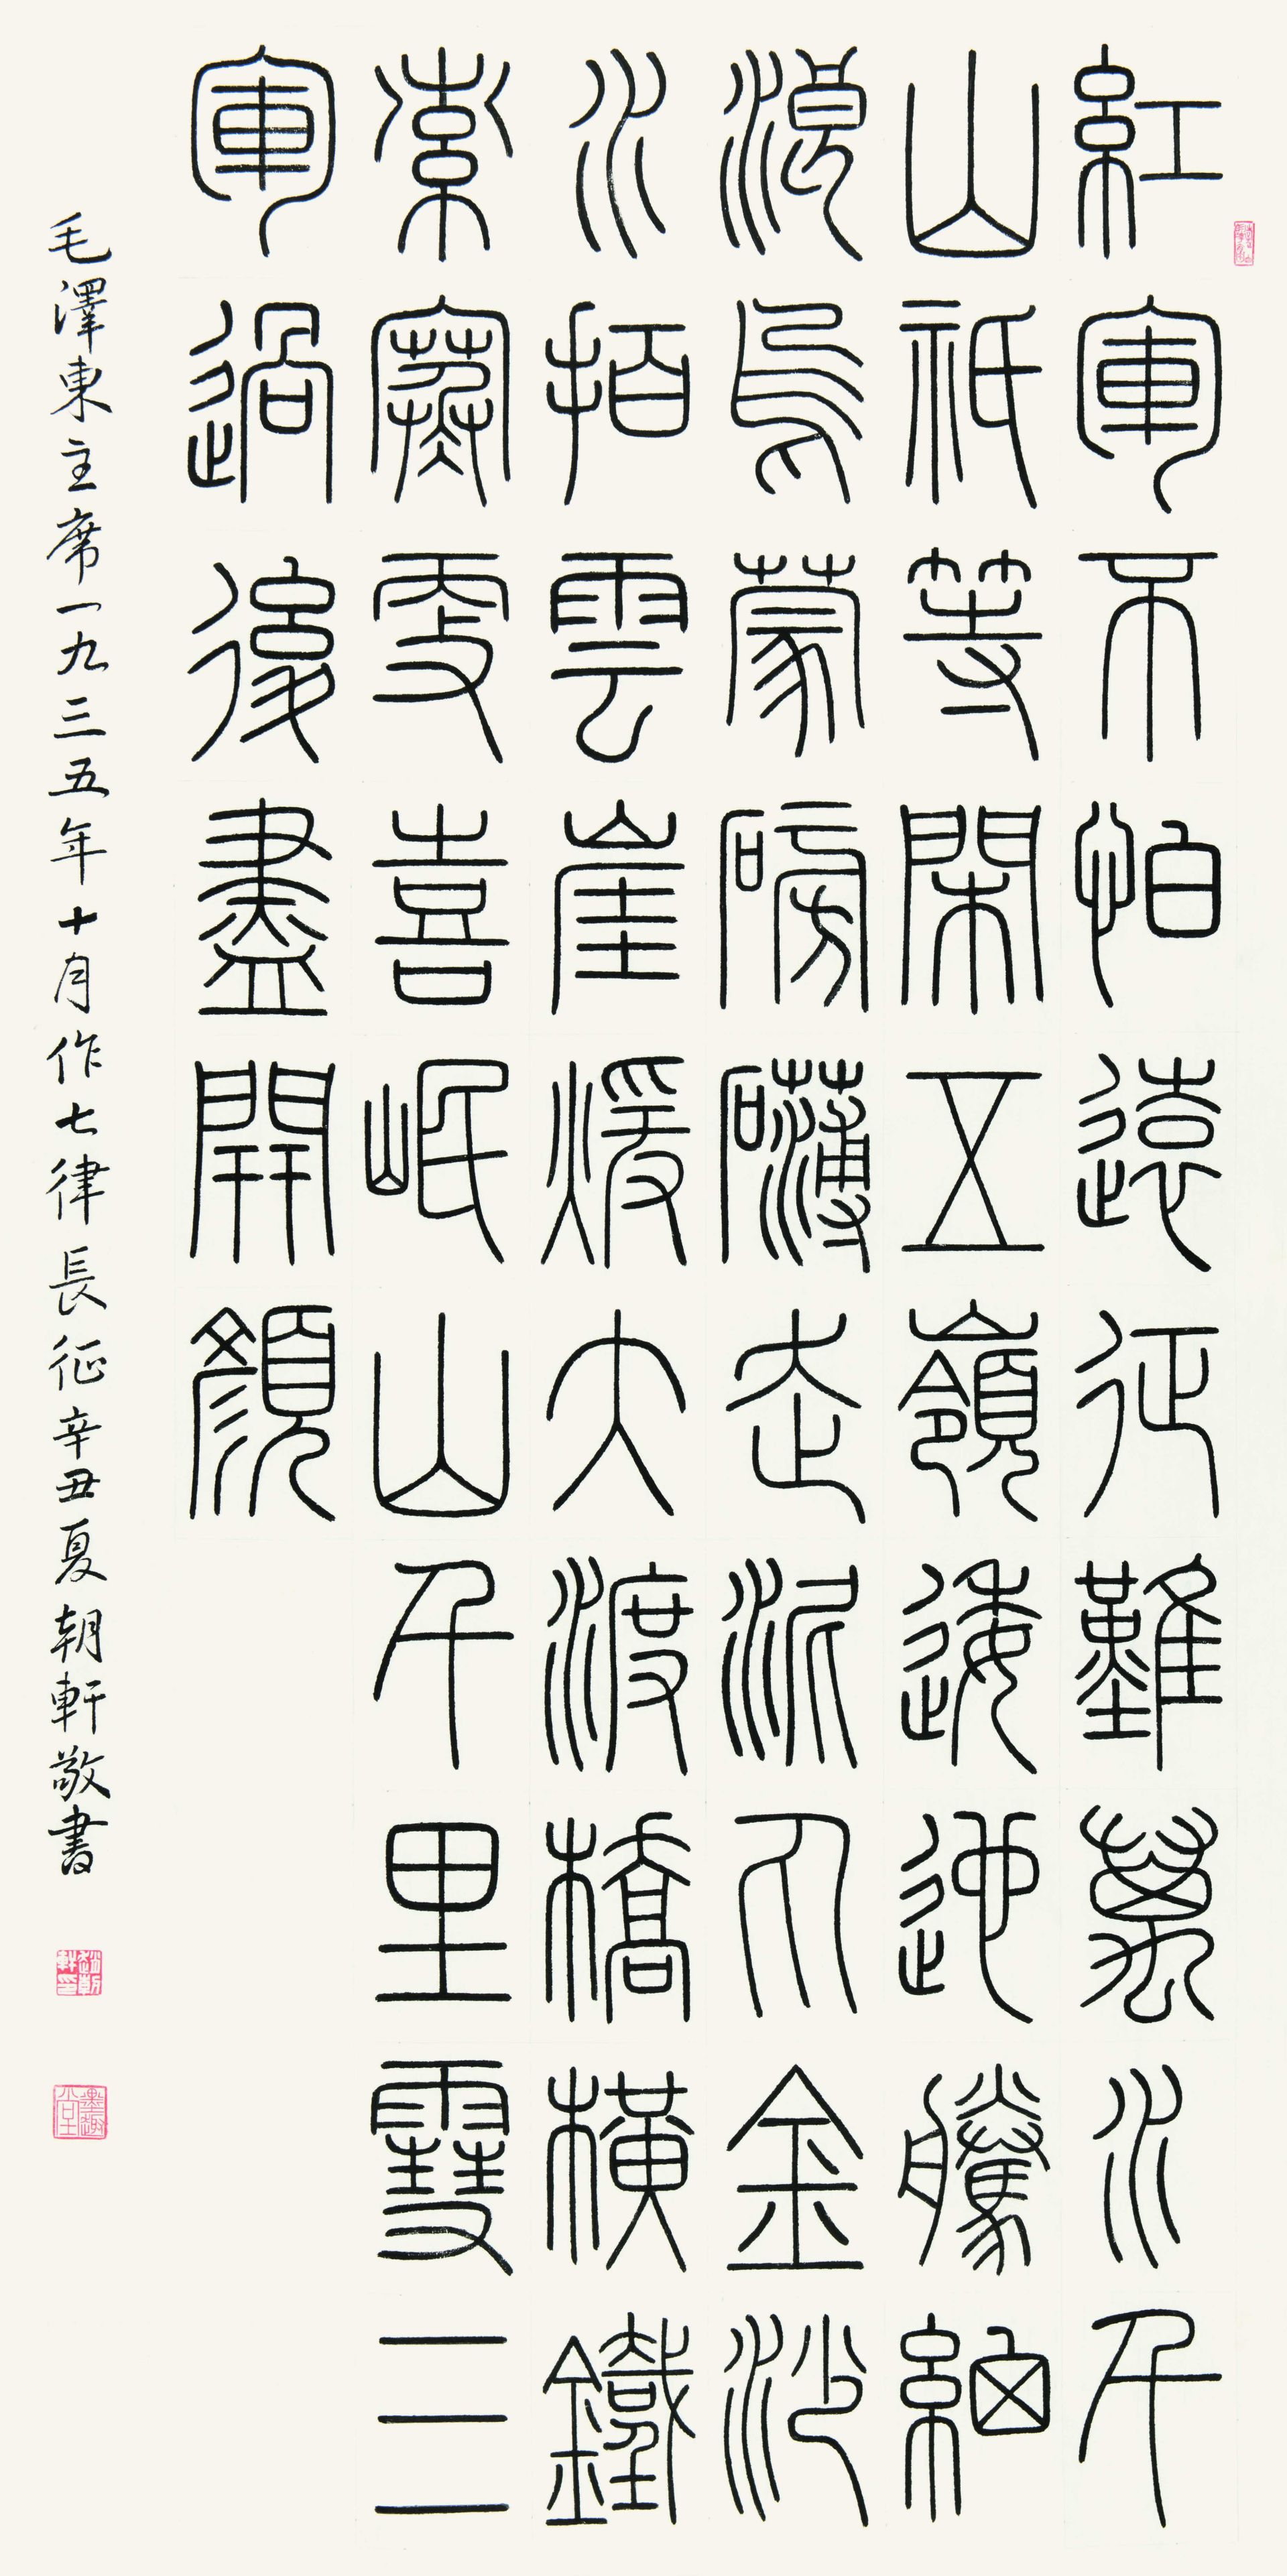 紅軍不怕遠征難萬水千
山祇等閑五嶺逶迤騰細
浪烏蒙磅礴走泥丸金沙
水拍雲崖煖大渡橋橫鐵
索寒更喜岷山千里雪三
軍過後盡開顏
毛澤東主席一九三五年十月作七律長征辛丑夏朝軒敬書
趙朝軒印
墨趣堂